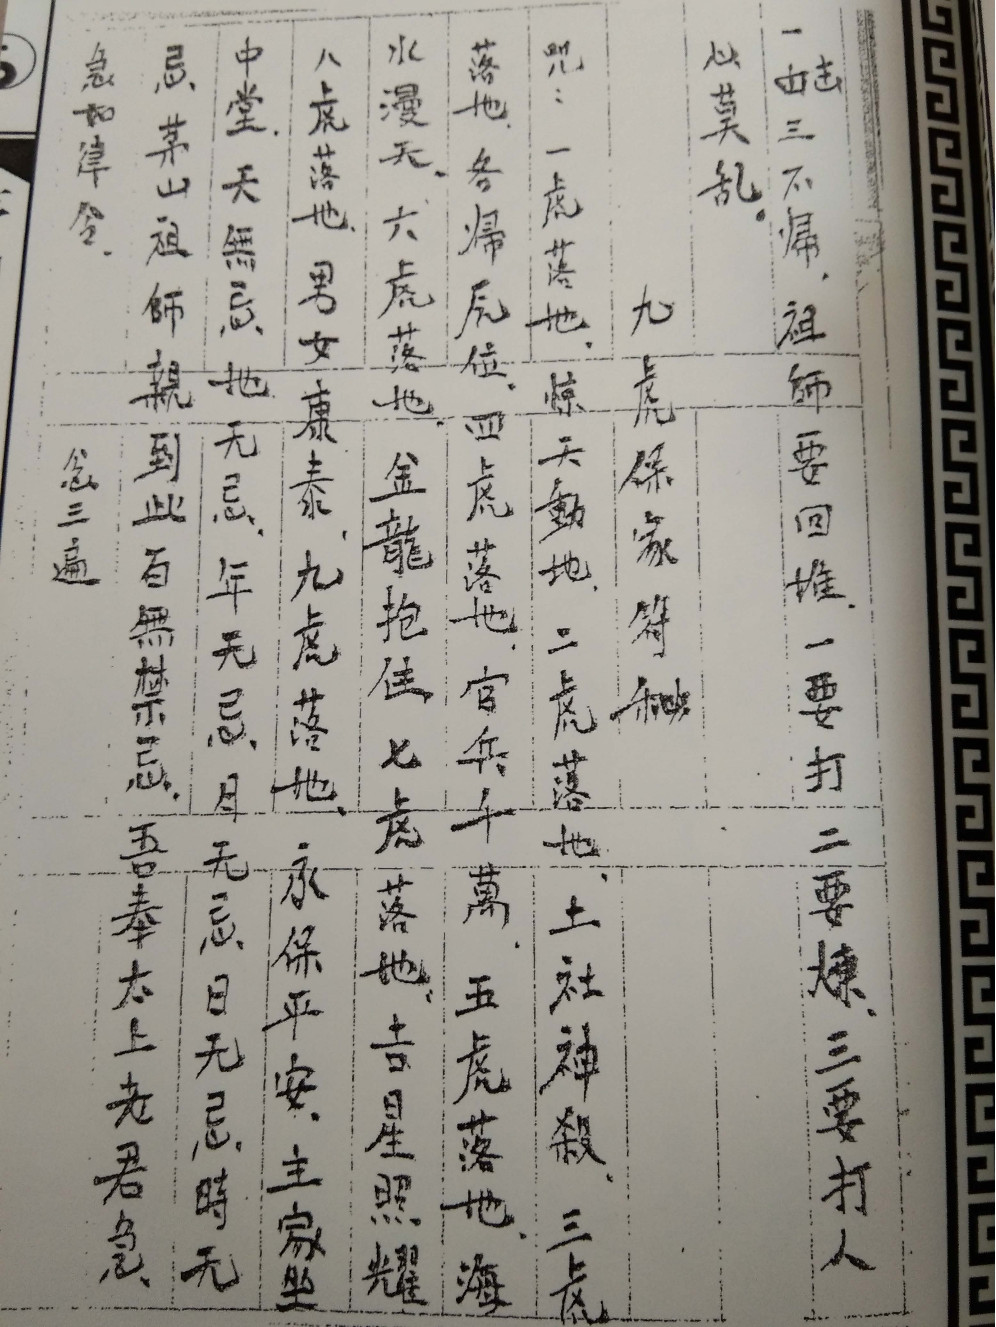 三不帰，祖師要回堆，一要打二要煉，三要打人
心莫乱。
九虎保家符秘
咒：一虎落地，惊天動地，二虎落地，土社神殺，三虎
落地，各帰虎位，四虎落地，官兵千萬，五虎落地，海
水漫天，六虎落地，金龍抱住，七虎落地，吉星照耀
八虎落地，男女康泰，九虎落地，永保平安，主家坐
中堂，天無忌，地无忌，年无忌，月无忌，日无忌，時无
忌，茅山祖師親到此百無禁忌，吾奉太上老君急，
急如律令．
念三遍